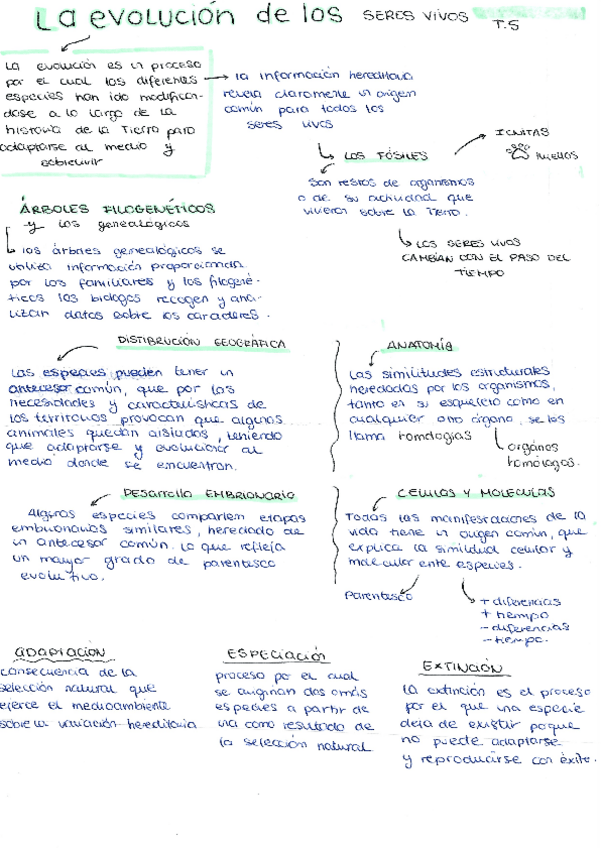 La evolución de los SERES VIVOS T.5
La evolución es un proceso
por el cual los diferentes
especies han ido modifican-
dose a lo largo de la
historia de la Tierra para
adaptarse al medio y
sobrevivir
la información hereditaria
revela claramente un origen
común para todos los
seres vivos
LOS FÓSILES
ICNITAS
HUELLAS
Son restos de organismos
o de su actividad que
vivieron sobre la Tierra.
LOS SERES VIVOS
CAMBIAN CON EL PASO DEL
TIEMPO
ÁRBOLES FILOGENÉTICOS
y los genealógicos
los árboles genealógicos se
utiliza información proporcionada
por los familiares y los filogené-
ticos los biólogos recogen y ana-
lizan datos sobre los caracteres.
DISTIBRUCIÓN GEOGRÁFICA
Las especies pueden tener un
antecesor común, que por las
necesidades y características de
los territorios provocan que algunos
animales quedan aislados, teniendo
que adaptarse y evolucionar al
medio donde se encuentran.
ANATOMÍA
Las similitudes estructurales
heredadas por los organismos,
tanto en su esqueleto como en
cualquier otro órgano, se les
llama homologías
órganos
homólogos.
Desarrollo EMBRIONARIO
Algunas especies comparten etapas
embrionarias similares, heredado de
un antecesor común. Lo que refleja
un mayor grado de parentesco
evolutivo.
CÉLULAS Y MOLECULAS
Todas las manifestaciones de la
vida tiene un origen común, que
explica la similitud celular y
molecular ente especies.
Parentesco
+ diferencias
+ tiempo
- diferencias
- tiempo.
adaptación
consecuencia de la
selección natural que
ejerce el medioambiente
sobre la variación hereditaria
ESPECIACIÓN
proceso por el cual
se originan dos o más
especies a partir de
una como resultado de
la selección natural
EXTINCIÓN
la extinción es el proceso
por el que una especie
deja de existir porque
no puede adaptarse
y reproducirse con éxito.